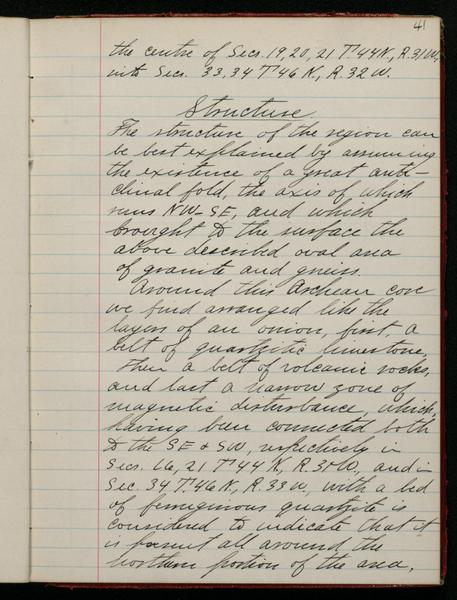 41
the centre of Secs. 19, 20, 21 T. 44 N., R. 31 W.,
into Secs. 33, 34 T 46 N., R. 32 W.
Structure
The structure of the region can
be best explained by assuming
the existence of a great anti-
clinal fold, the axis of which
runs NW-SE, and which
brought to the surface the
above described oval area
of granite and gneiss.
Around this Archean core
we find arranged like the
layers of an onion, first, a
belt of quartzitic limestone,
then a belt of volcanic rocks,
and last a narrow zone of
magnetic disturbance, which,
having been connected both
to the SE & SW, respectively in
Secs. 16, 21 T 44 N., R. 31 W., and in
Sec. 34 T. 46 N., R. 33 W., with a bed
of ferruginous quartzite is
considered to indicate that it
is present all around the
northern portion of the area.